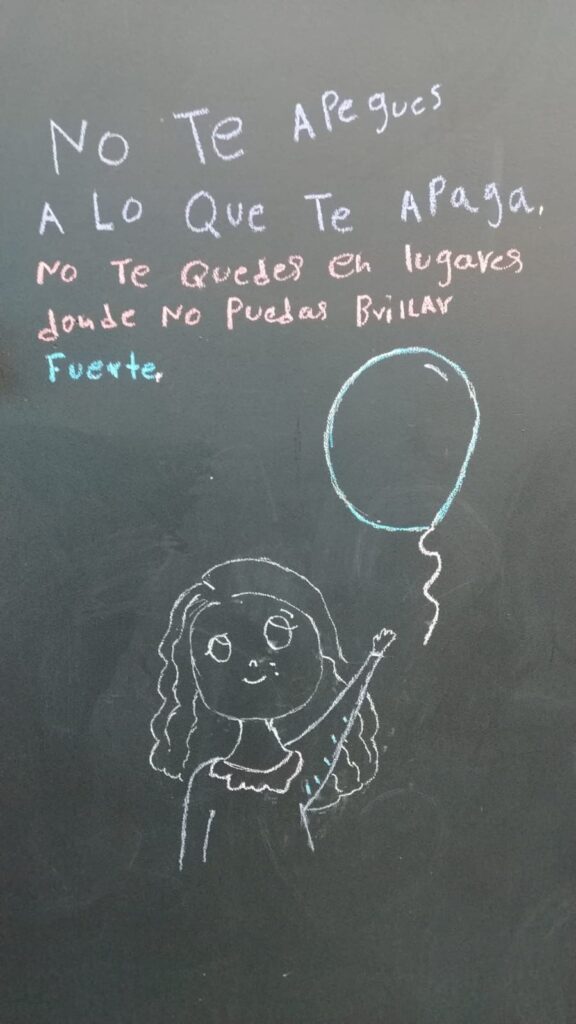 No Te Apegues
A Lo Que Te Apaga.
No Te Quedes en lugares
donde No Puedas BrilLAr
Fuerte.